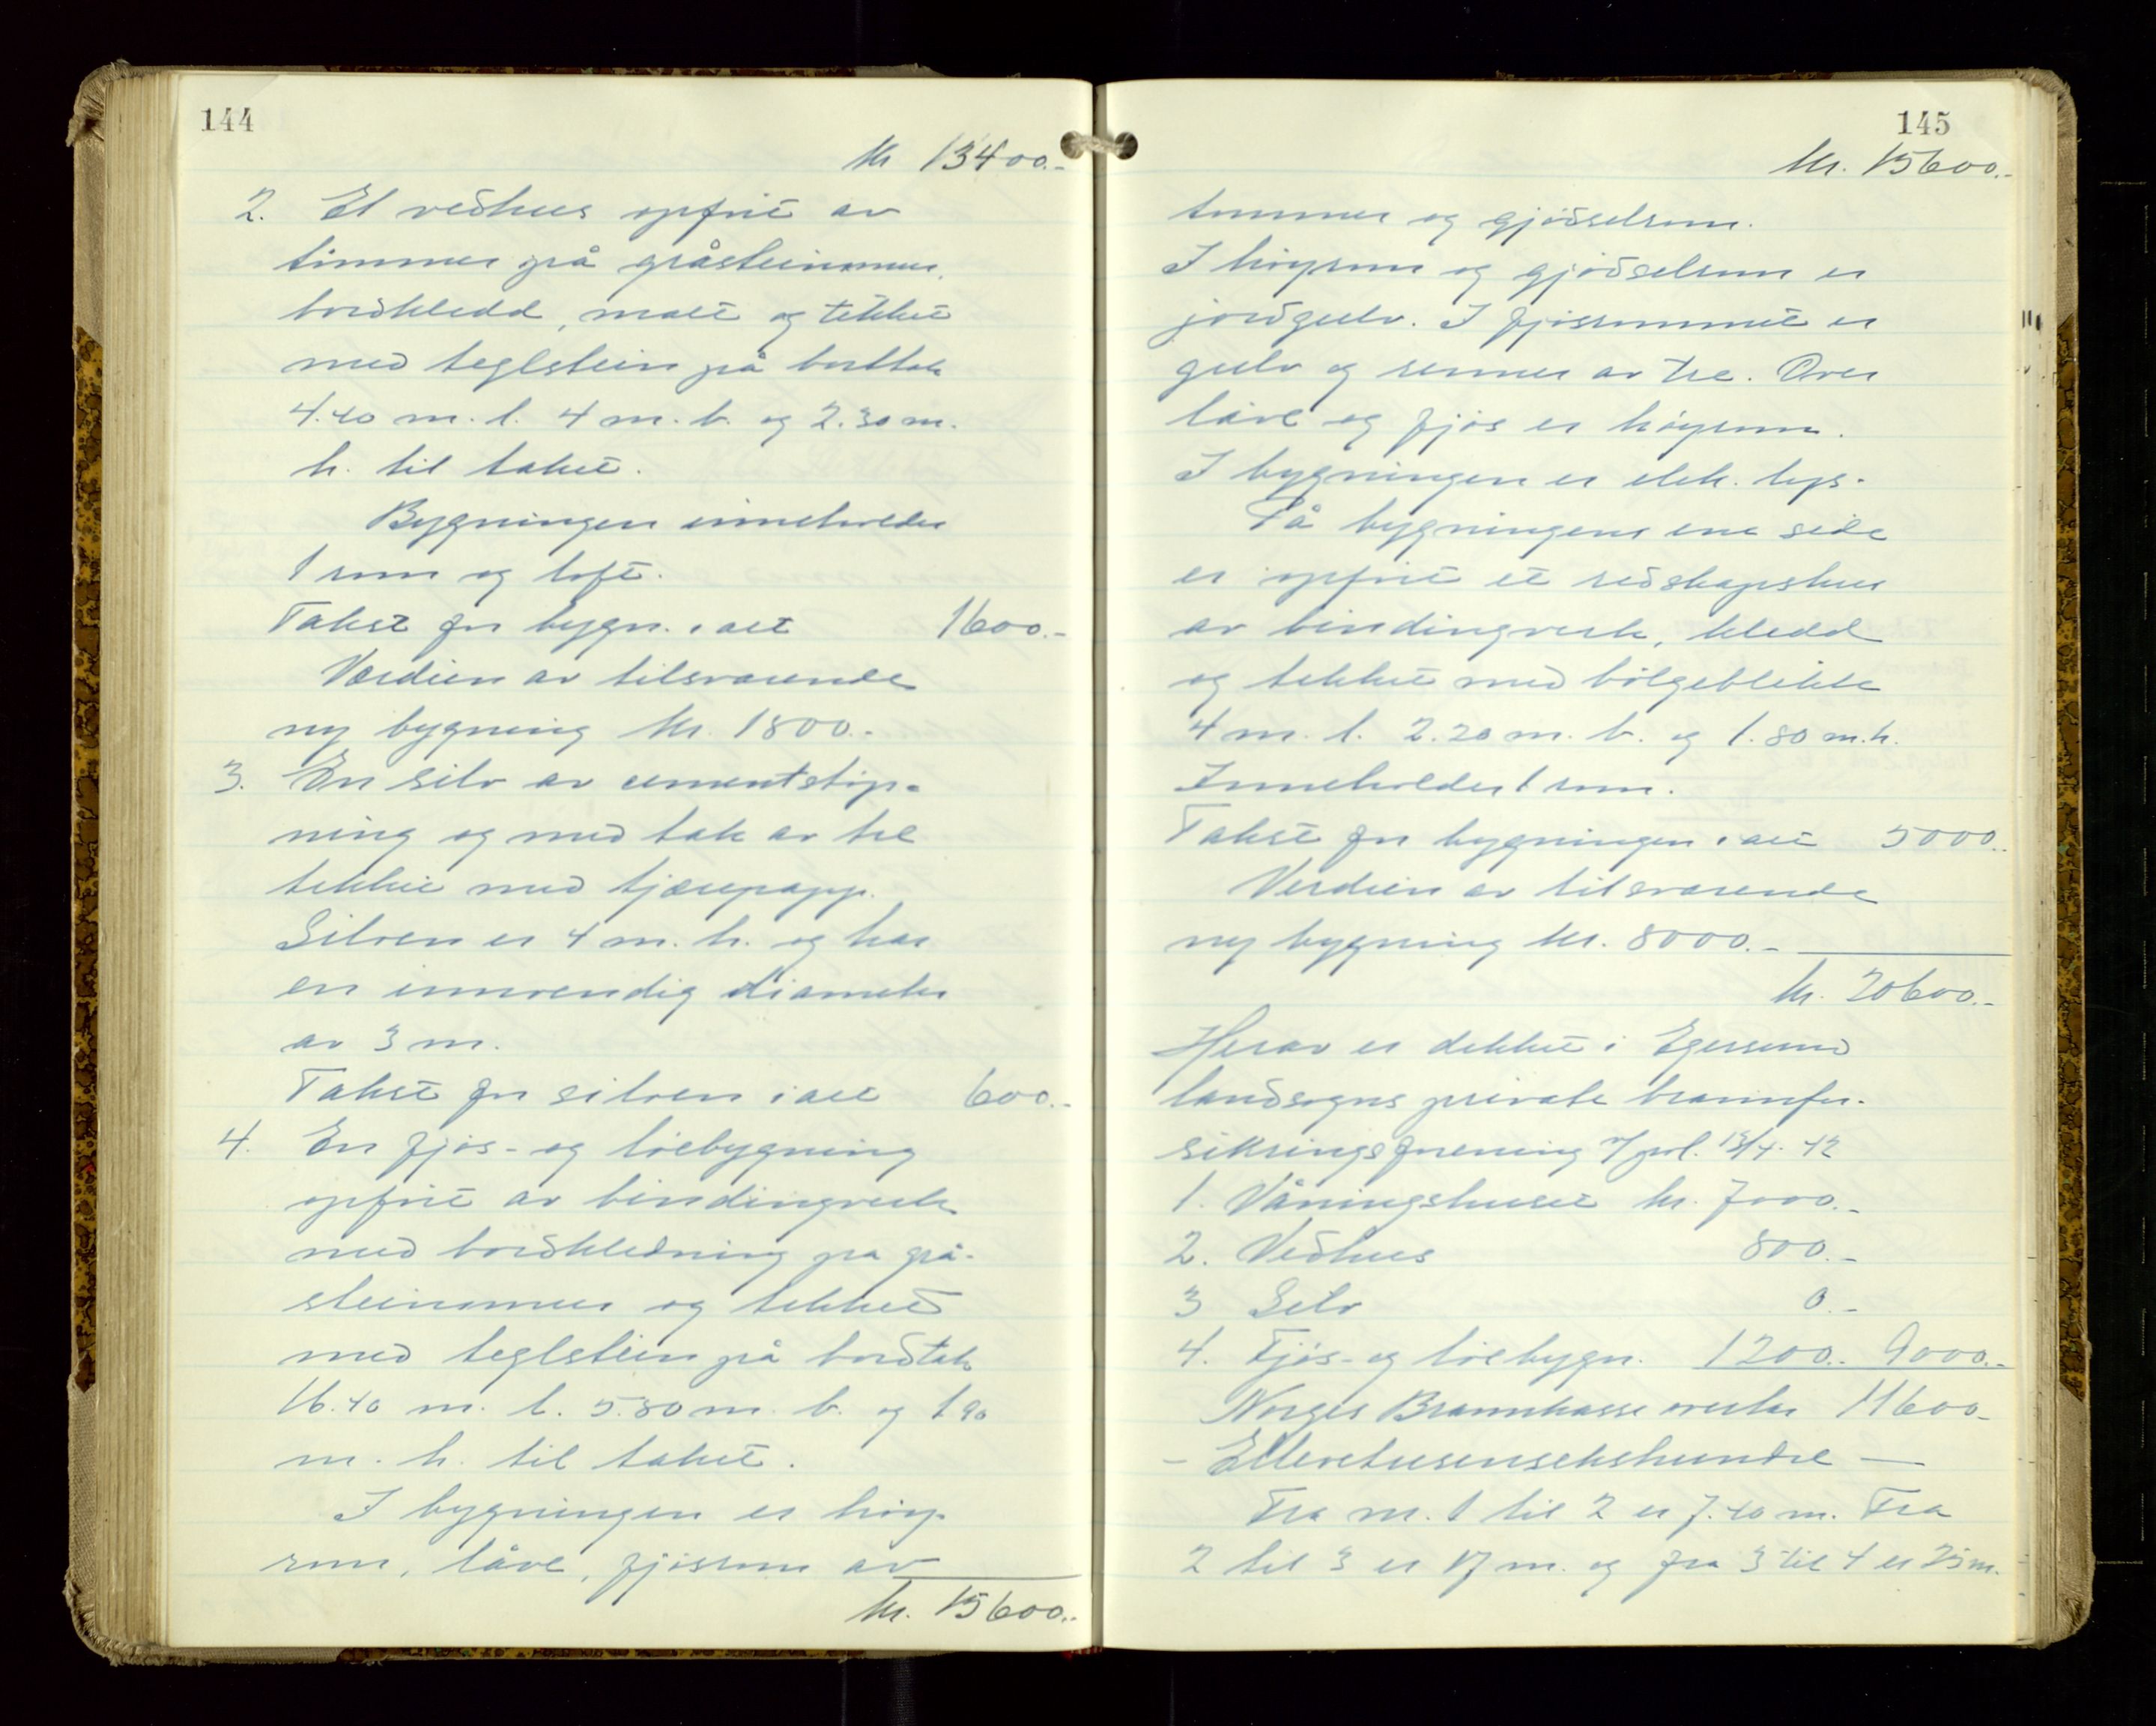 144
kr 13400.-
2. Et vedhus opført av
tømmer på gråsteinsmur,
bordkledd, malt og tekket
med teglstein på bordtak
4.40 m. l. 4 m. b. og 2.30 m.
h. til taket.
Bygningen inneholder
1 rum og loft.
Takst for bygn. i alt 1600.-
Verdien av tilsvarende
ny bygning kr. 1800.-
3. En silo av cementstøp-
ning og med tak av tre
tekket med tjærepapp.
Siloen er 4 m. h. og har
en innvendig diameter
av 3 m.
Takst for siloen i alt 600.-
4. En fjøs- og løebygning
opført av bindingverk
med bordkledning på grå-
steinsmur og tekket
med teglstein på bordtak
16.40 m. l. 5.80 m. b. og 1.90
m. h. til taket.
I bygningen er høy-
rum, låve, fjøsrum av
kr. 15600.-
145
kr. 15600.-
tømmer og gjødselrum.
I høyrum og gjødselrum er
jordgulv. I fjøsrummet er
gulv og renner av tre. Over
låve og fjøs er høyrum.
I bygningen er elek. lys.
På bygningens ene side
er opført et redskapshus
av bindingverk, kledd
og tekket med bølgeblikk
4 m. l. 2.20 m. b. og 1.80 m. h.
Inneholder 1 rum.
Takst for bygningen i alt 5000.-
Verdien av tilsvarende
ny bygning kr. 8000.-
kr. 20600.-
Herav er dekket i Egersund
landsogns private brannfor-
sikringsforening i/pol. 13/4. 42
1. Våningshuset kr. 7000.-
2. Vedhus 800.-
3 Silo 0.-
4. Fjøs- og løebygn. 1200.- 9000.-
Norges Brannkasse overtar 11600.-
- Ellevetusensekshundre -
Fra nr. 1 til 2 er 7.40 m. Fra
2 til 3 er 17 m. og fra 3 til 4 er 25 m.